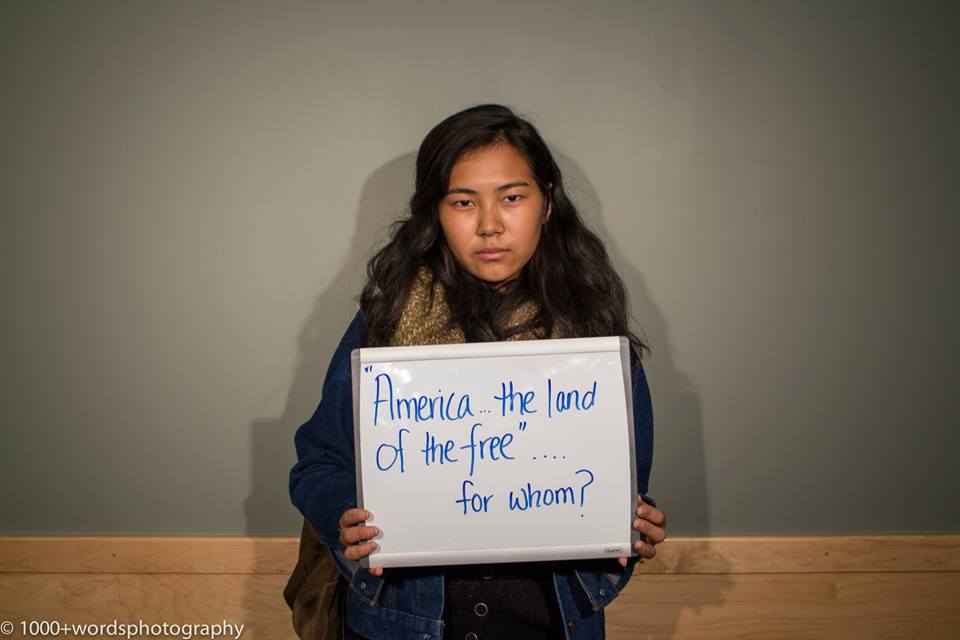 "America...the land
of the free"....
for whom?
© 1000+wordsphotography